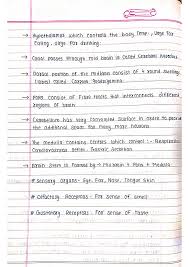 → Hypothalamus which controls the body temp, urge for
eating, urge for drinking.
→ Canal passes through mid brain is called Cerebral Aqueduct.
→ Dorsal portion of the Midbrain consists of 4 round swellings
(lobes) called Corpora Quadrigemina.
→ Pons consist of fibre tracts that interconnects different
regions of brain.
→ Cerebellum has very convoluted surface in order to provide
the additional space for many more neurons.
→ The medulla contains centers which control : Respiration,
Cardiovascular reflex, Gastric Secretion.
→ Brain Stem is formed by : Mid brain + Pons + Medulla
# Sensory organs - Eye, Ear, Nose, Tongue, Skin
# Olfactory Receptors - For sense of smell
# Gustatory Receptors - For sense of Taste